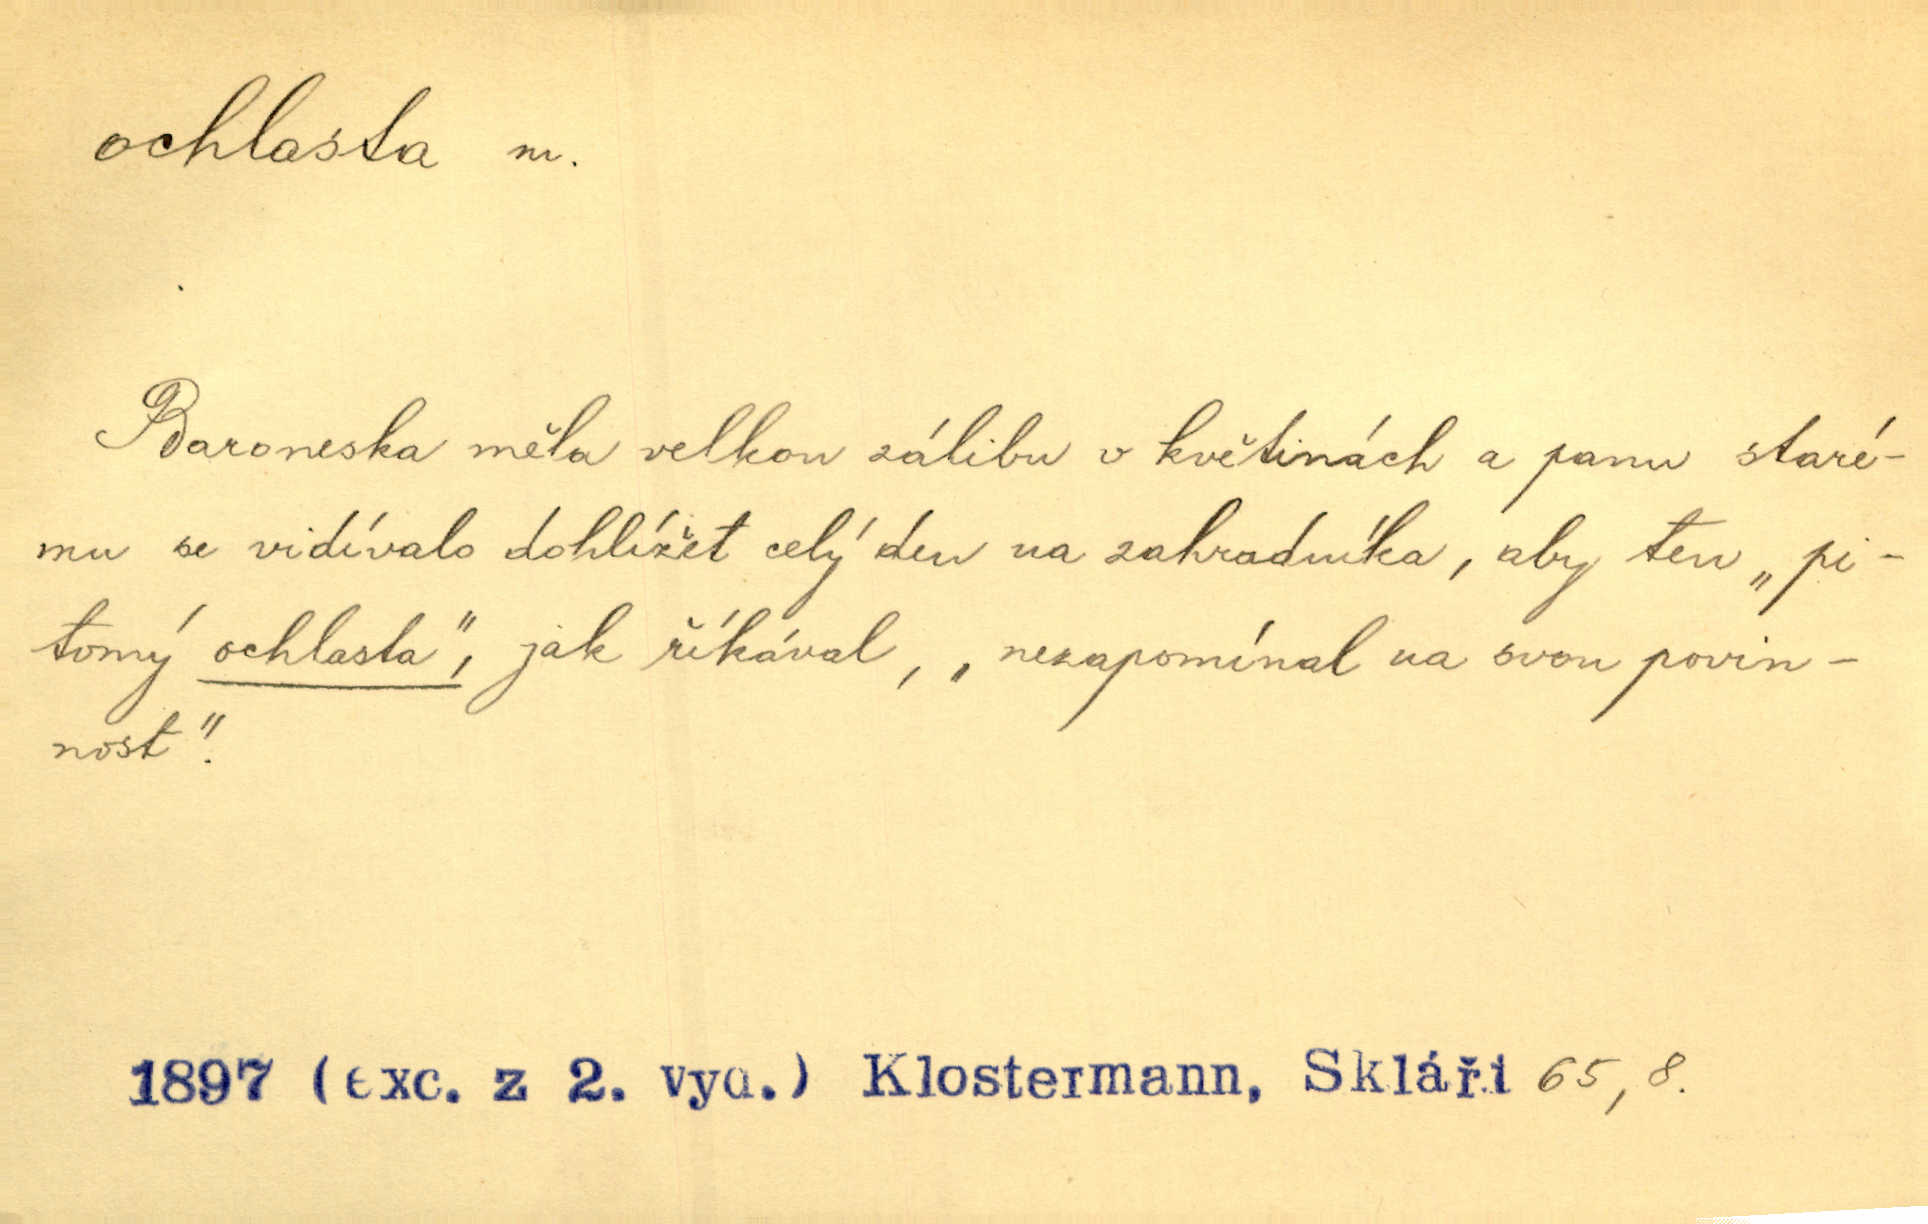 ochlasta m.
Baroneska měla velkou zálibu v květinách a panu staré-
mu se vidívalo dohlížet celý den na zahradníka, aby ten „pi-
tomý ochlasta", jak říkával, „nezapomínal na svou povin-
nost".
1897 (exc. z 2. vyd.) Klostermann, Skláři 65,8.